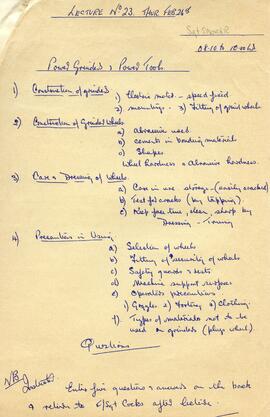 LECTURE No 23. THUR FEB 24th
08.10 to 10.00 hrs
Power Grinders & Power Tools
1) Construction of grinders
i) Electric motor - speed fixed
2) mountings. 3) Fitting of grind wheels
2) Construction of Grinding Wheels
a) Abrasive used
b) cements or bonding material
c) Shapes
Wheel hardness & Abrasive hardness.
3) Care & Dressing of Wheels.
a) Care in use storage. (easily cracked)
b) Test for cracks (by tapping)
c) Keep free true, clean, sharp by
Dressing - Truing
4) Precautions in Using
a) Selection of wheels
b) Fitting & security of wheels
c) Safety guards & rests
d) Machine support surfaces
e) Operators precautions
i) Goggles 2) Footing 3) Clothing.
f) Types of materials not to be
used on grinders (plugs wheel).
Questions
N.B.
Enter five questions & answers on the back
& return to S/Sgt Cocks after lecture.